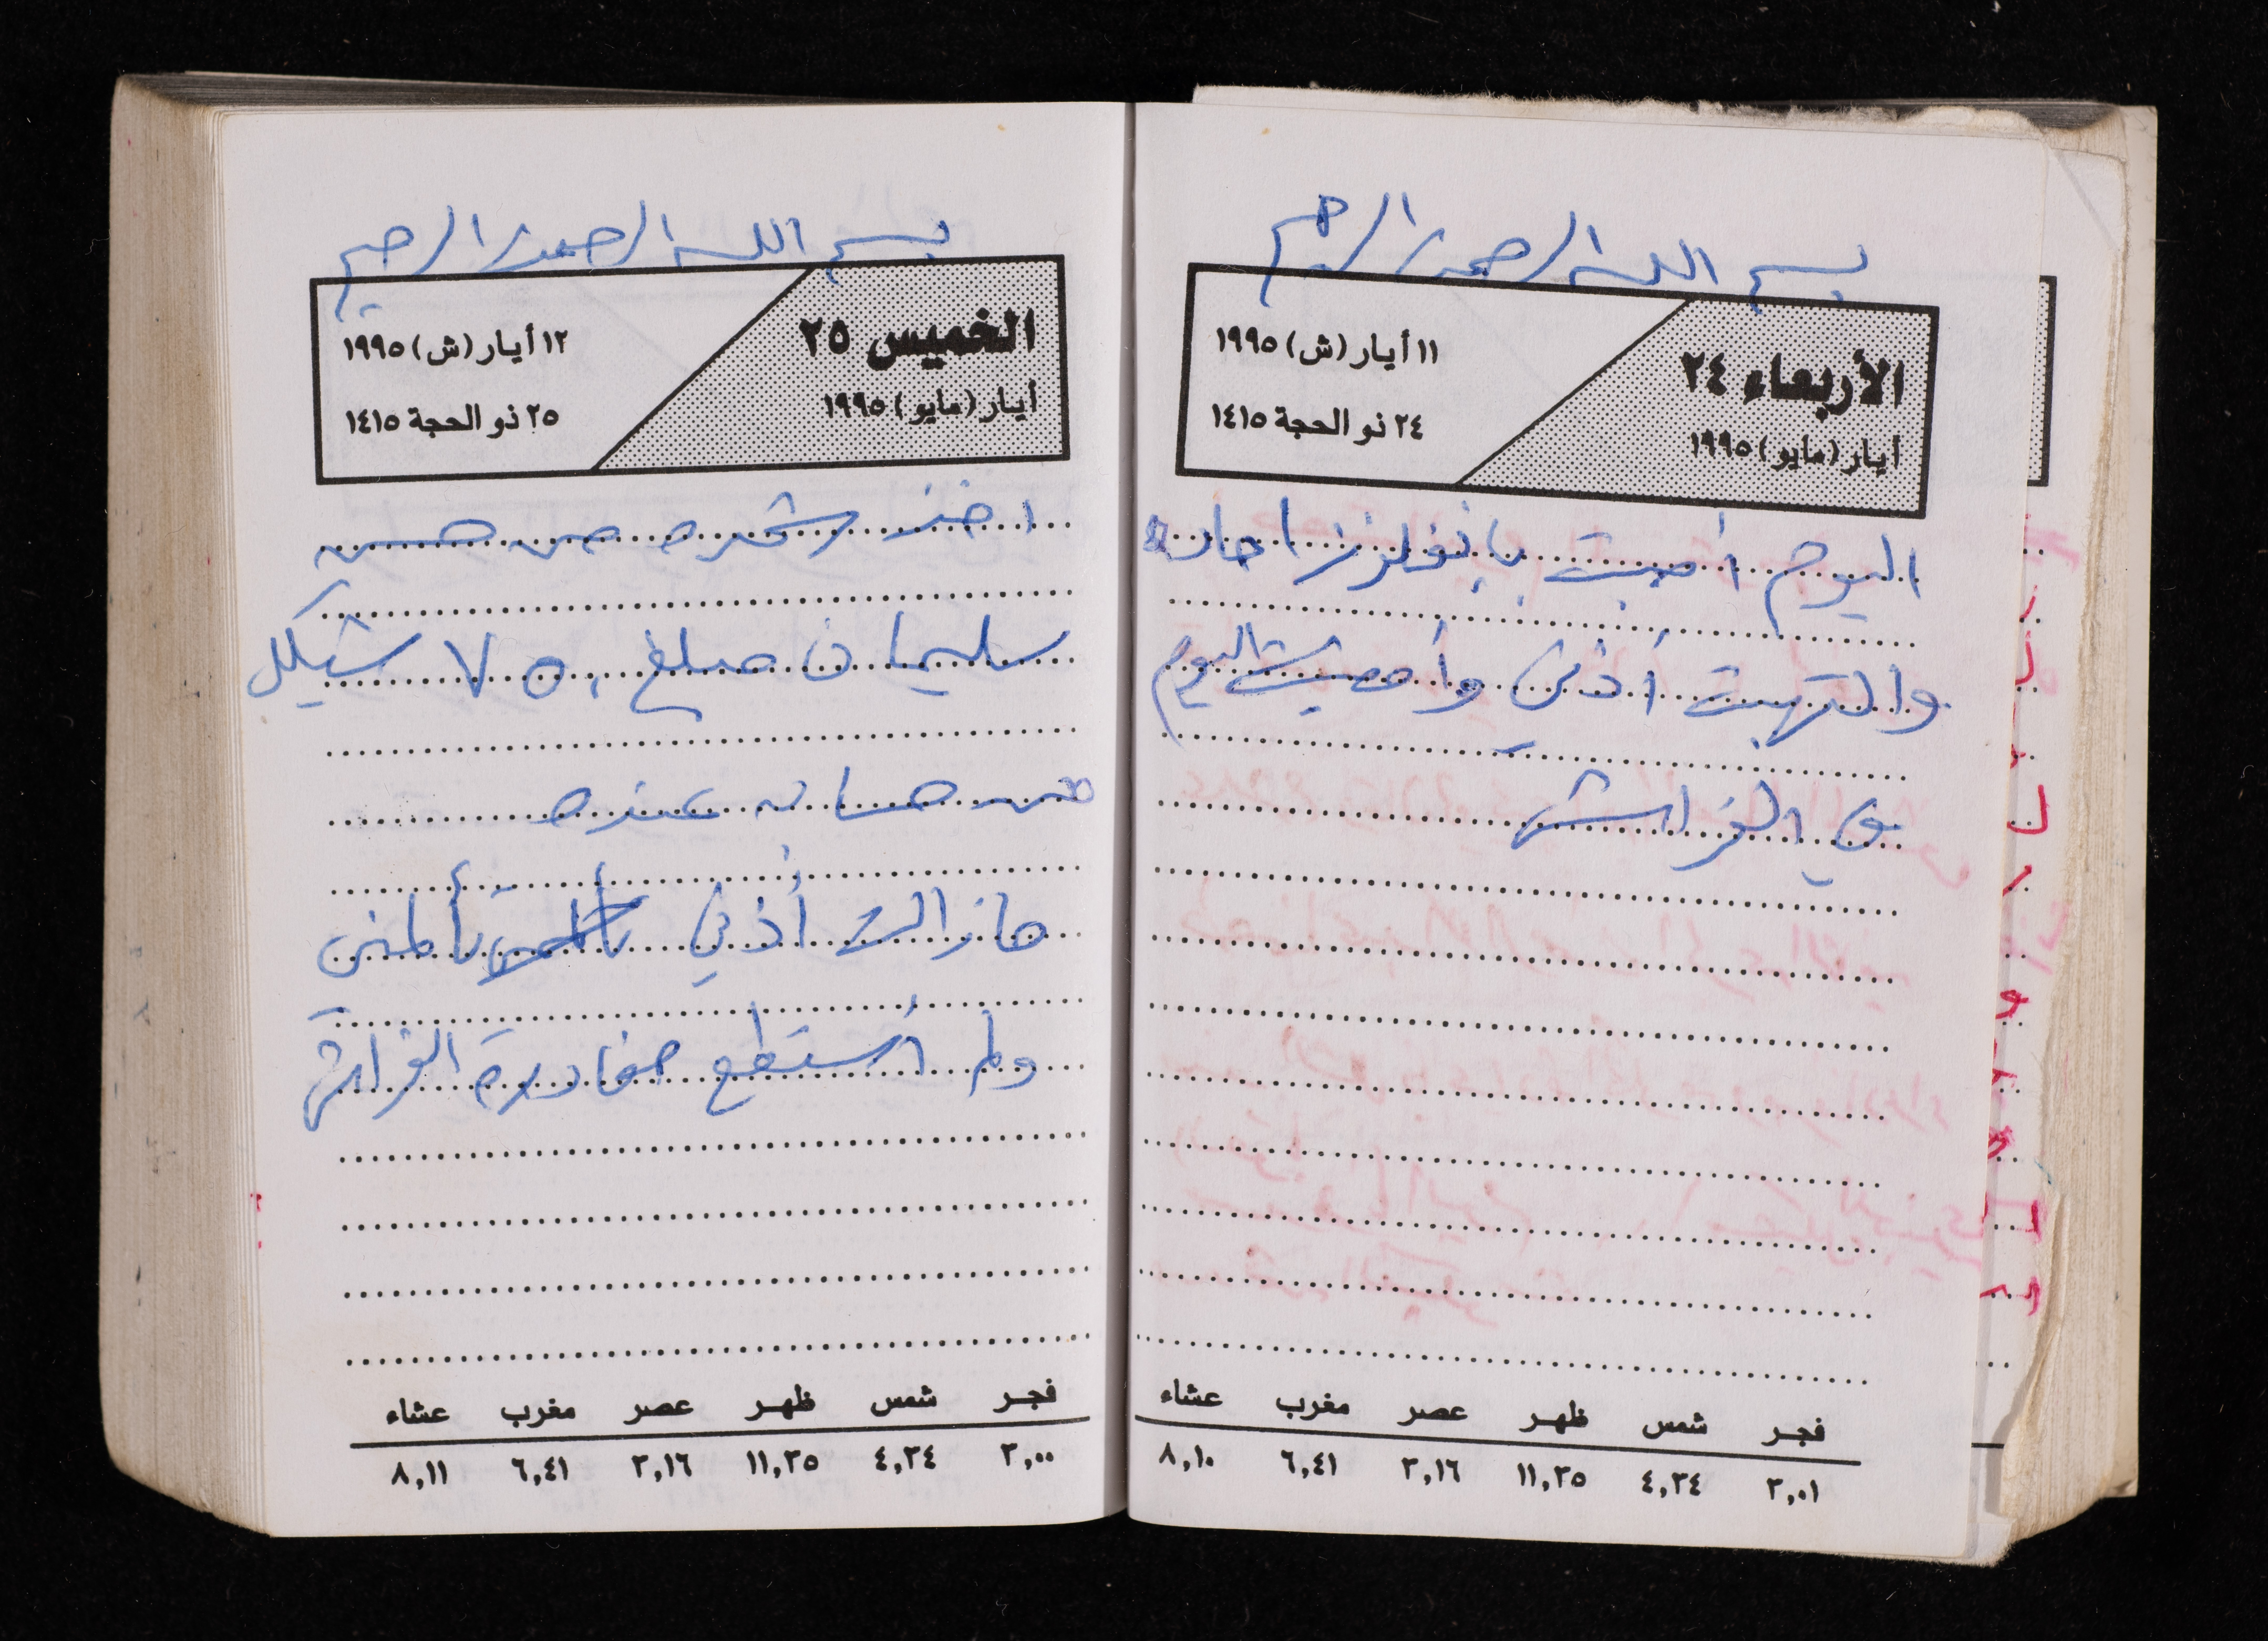 بسم الله الرحمن الرحيم
الأربعاء ٢٤
أيار (مايو) ١٩٩٥
١١ أيار (ش) ١٩٩٥
٢٤ ذو الحجة ١٤١٥
اليوم أصبت بإنفلونزا حادة
والتهبت أذني وأمضيت اليوم
في الفراش
فجر شمس ظهر عصر مغرب عشاء
٣,٠١ ٤,٣٤ ١١,٣٥ ٣,١٦ ٦,٤١ ٨,١٠
بسم الله الرحمن الرحيم
الخميس ٢٥
أيار (مايو) ١٩٩٥
١٢ أيار (ش) ١٩٩٥
٢٥ ذو الحجة ١٤١٥
اخذ شحده من حسن
سليمان مبلغ ٧٥٠ شيكل
من حسابه عنده
ما زالت أذني تألمني
ولم أستطع مغادرة الفراش
فجر شمس ظهر عصر مغرب عشاء
٣,٠٠ ٤,٣٤ ١١,٣٥ ٣,١٦ ٦,٤١ ٨,١١